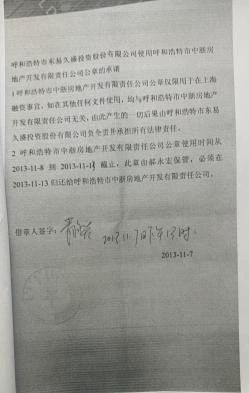 呼和浩特市东易久盛投资股份有限公司使用呼和浩特市中浙房
地产开发有限责任公司公章的承诺
1 呼和浩特市中浙房地产开发有限责任公司公章仅限用于在上海
融资事宜，如在其他任何文件使用，均与呼和浩特市中浙房地产
开发有限责任公司无关，由此产生的一切后果由呼和浩特市东易
久盛投资股份有限公司负全责并承担所有法律责任。
2 呼和浩特市中浙房地产开发有限责任公司公章使用时间从
2013-11-8 到 2013-11-1 截止，此章由解永宏保管，必须在
2013-11-13 归还给呼和浩特市中浙房地产开发有限责任公司。
借章人签字：
2013.11.7日下午
2013-11-7